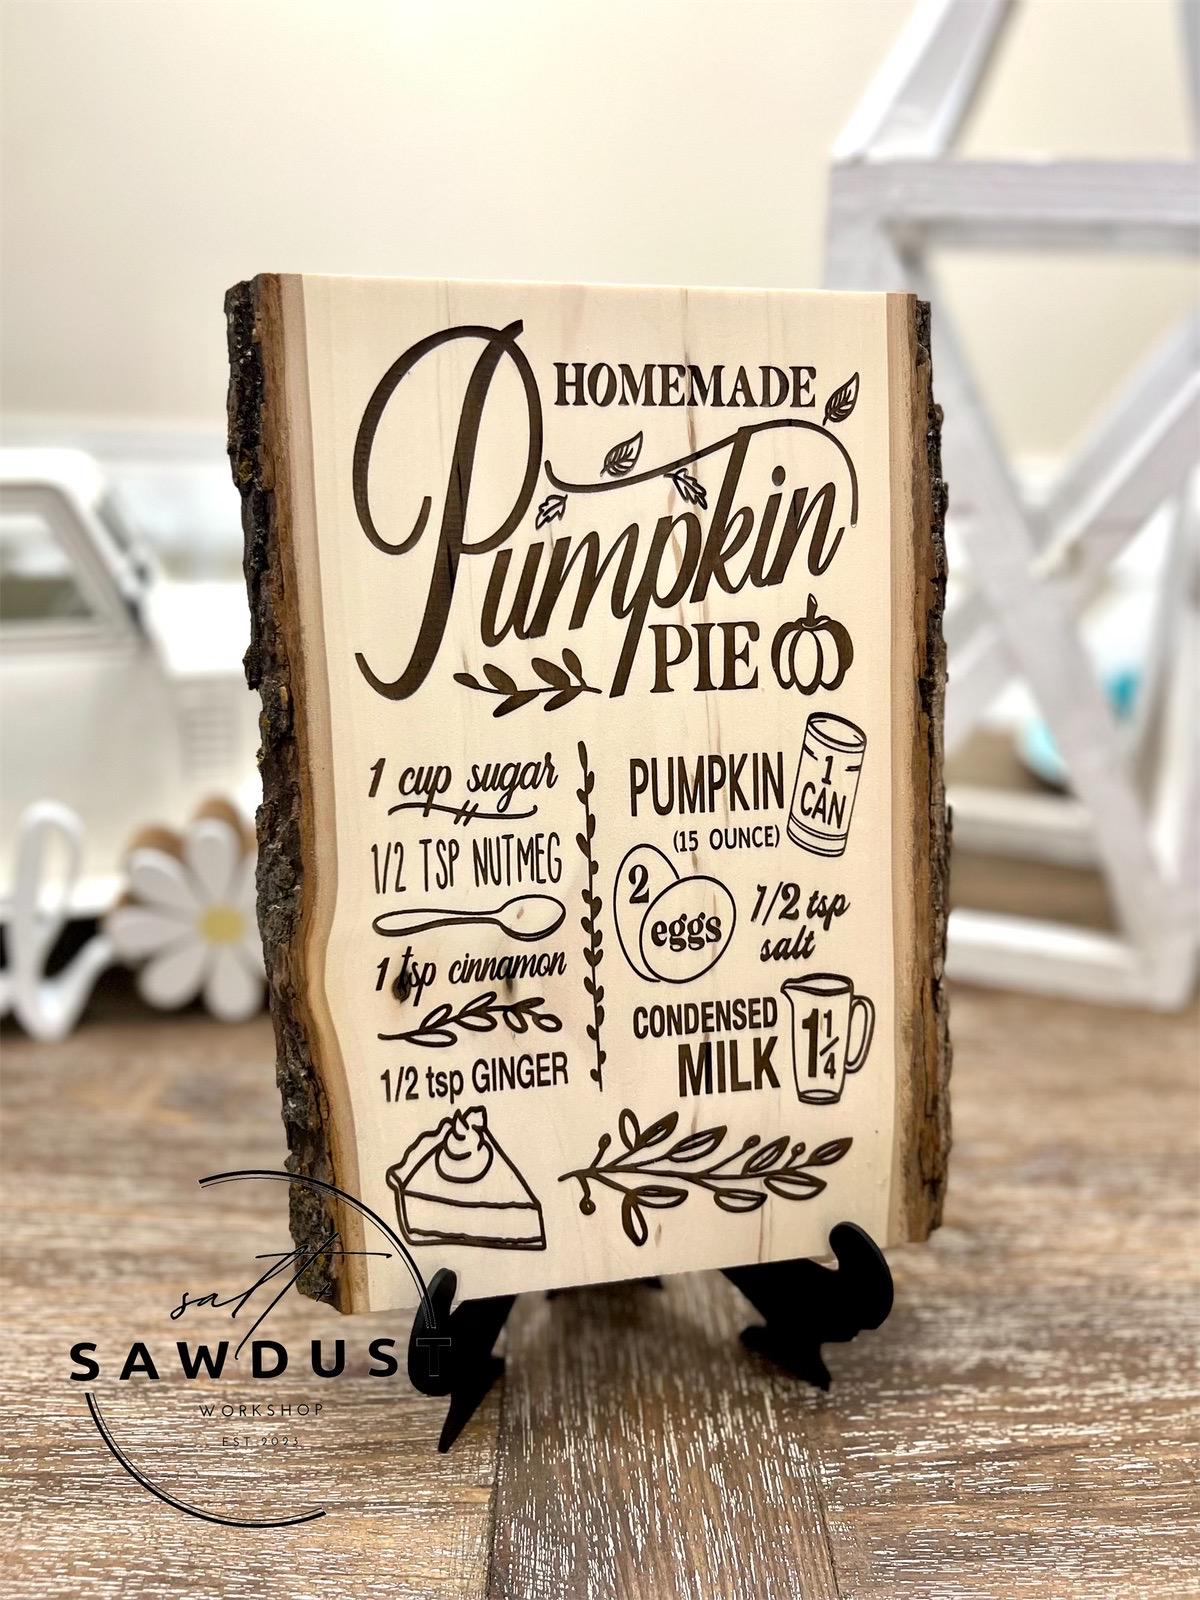 HOMEMADE
Pumpkin
PIE
1 cup sugar
1/2 TSP NUTMEG
1 tsp cinnamon
1/2 tsp GINGER
PUMPKIN
(15 OUNCE)
1
CAN
2
eggs
1/2 tsp
salt
CONDENSED
MILK
1 1/4
salt +
SAWDUST
WORKSHOP
EST 2023